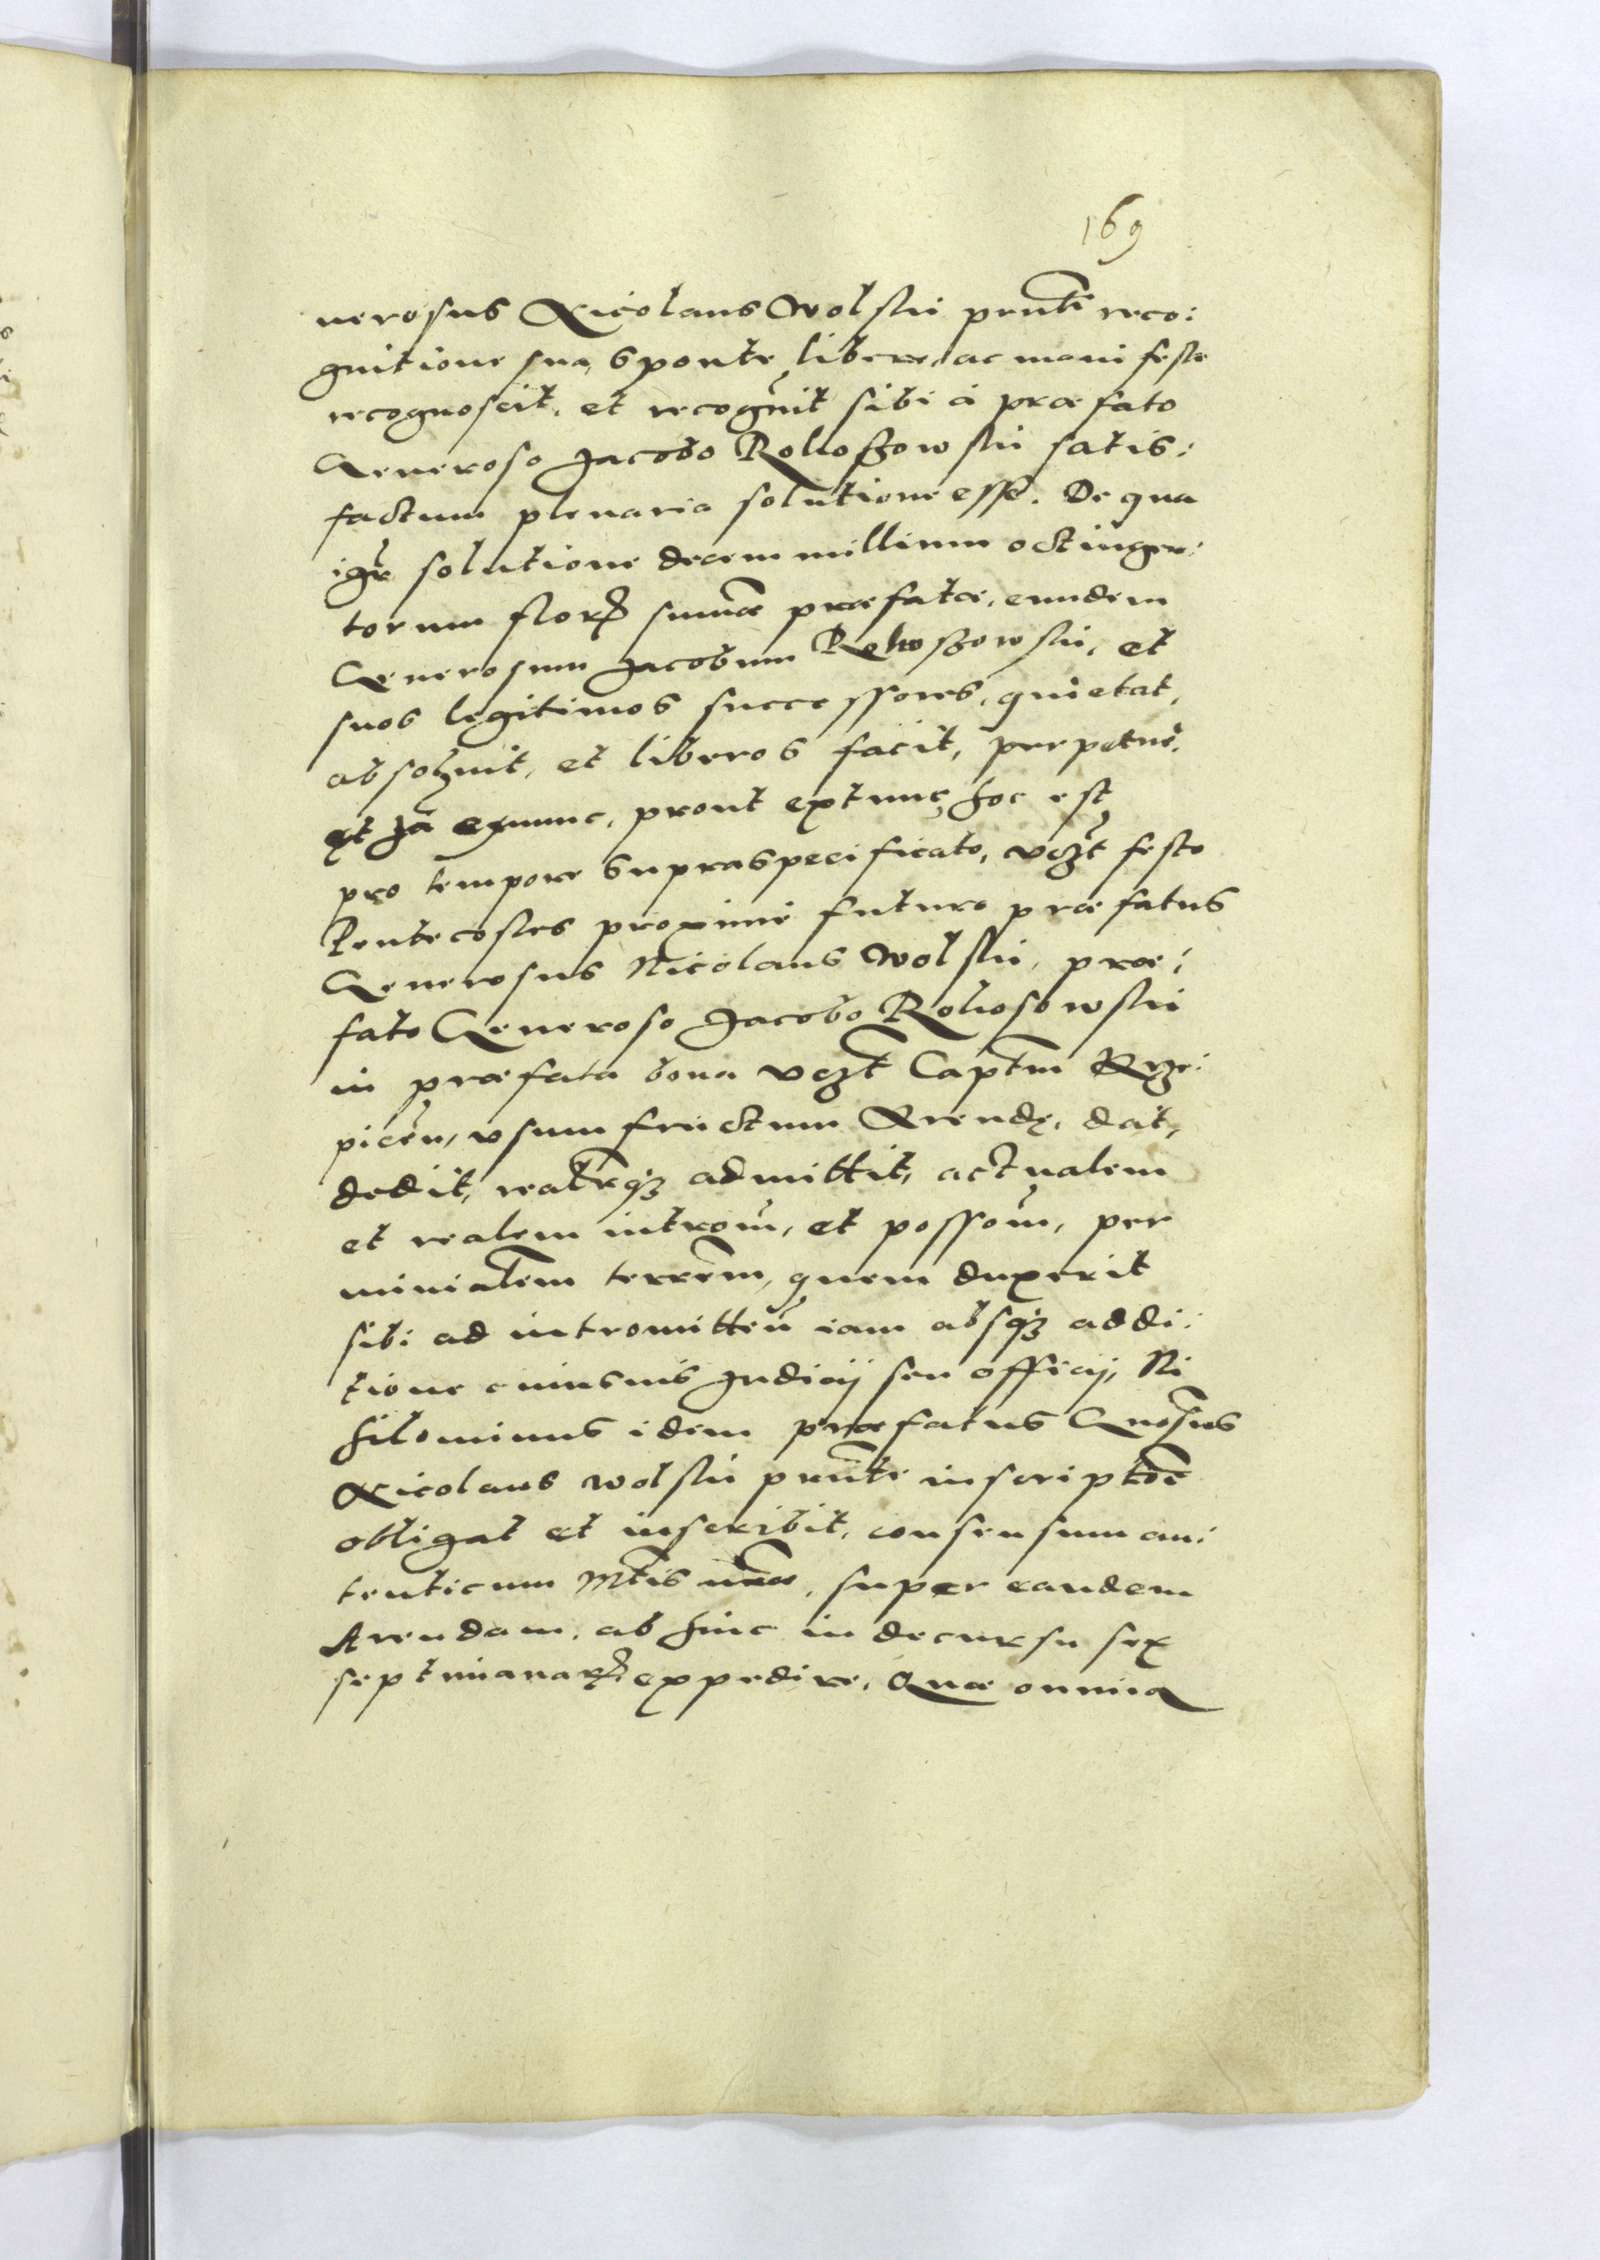 169
nerosus Nicolaus Wolski prñti reco:
gnitione sua, sponte, libere, ac manifeste
recognoscit, et recogñit sibi à præfato
Generoso Jacobo Rokossowski satis:
factum plenaria solutione esse. De qua
igr̃ solutione decem millium octingen:
torum floꝝ sum̃æ præfatæ, eundem
Generosum Jacobum Rokossowski, et
suos legitimos successores, quietat,
absolvuit, et liberos facit, perpetuè.
Et Ja exnunc, prout extunc, hoc est
pro tempore supraspecificato, vczt festo
Pentecostes proximè futuro præfatus
Generosus Nicolaus Wolski, præ:
fato Generoso Jacobo Rokosowski
in præfata bona vczt Captm̃ Krze:
picen̄, vsumfructum Arendę, dat,
dedit, realr̃qꝫ admittit, actualem
et realem introm̃, et possom̃, per
minialem̃ terrem̃, quem duxerit
sibi ad intromitten̄ iam absqꝫ addi:
tione cuiusuis Judicij seu officij, Ni
hilominus idem præfatus Gnosus̃
Nicolaus Wolski prñti inscriptõe
obligat et inscribit, consensum au:
tenticum Mtis nr̃æ, super eandem
Arendam, ab hinc in decursu sex
septimanaꝝ expedire, Quæ omnia